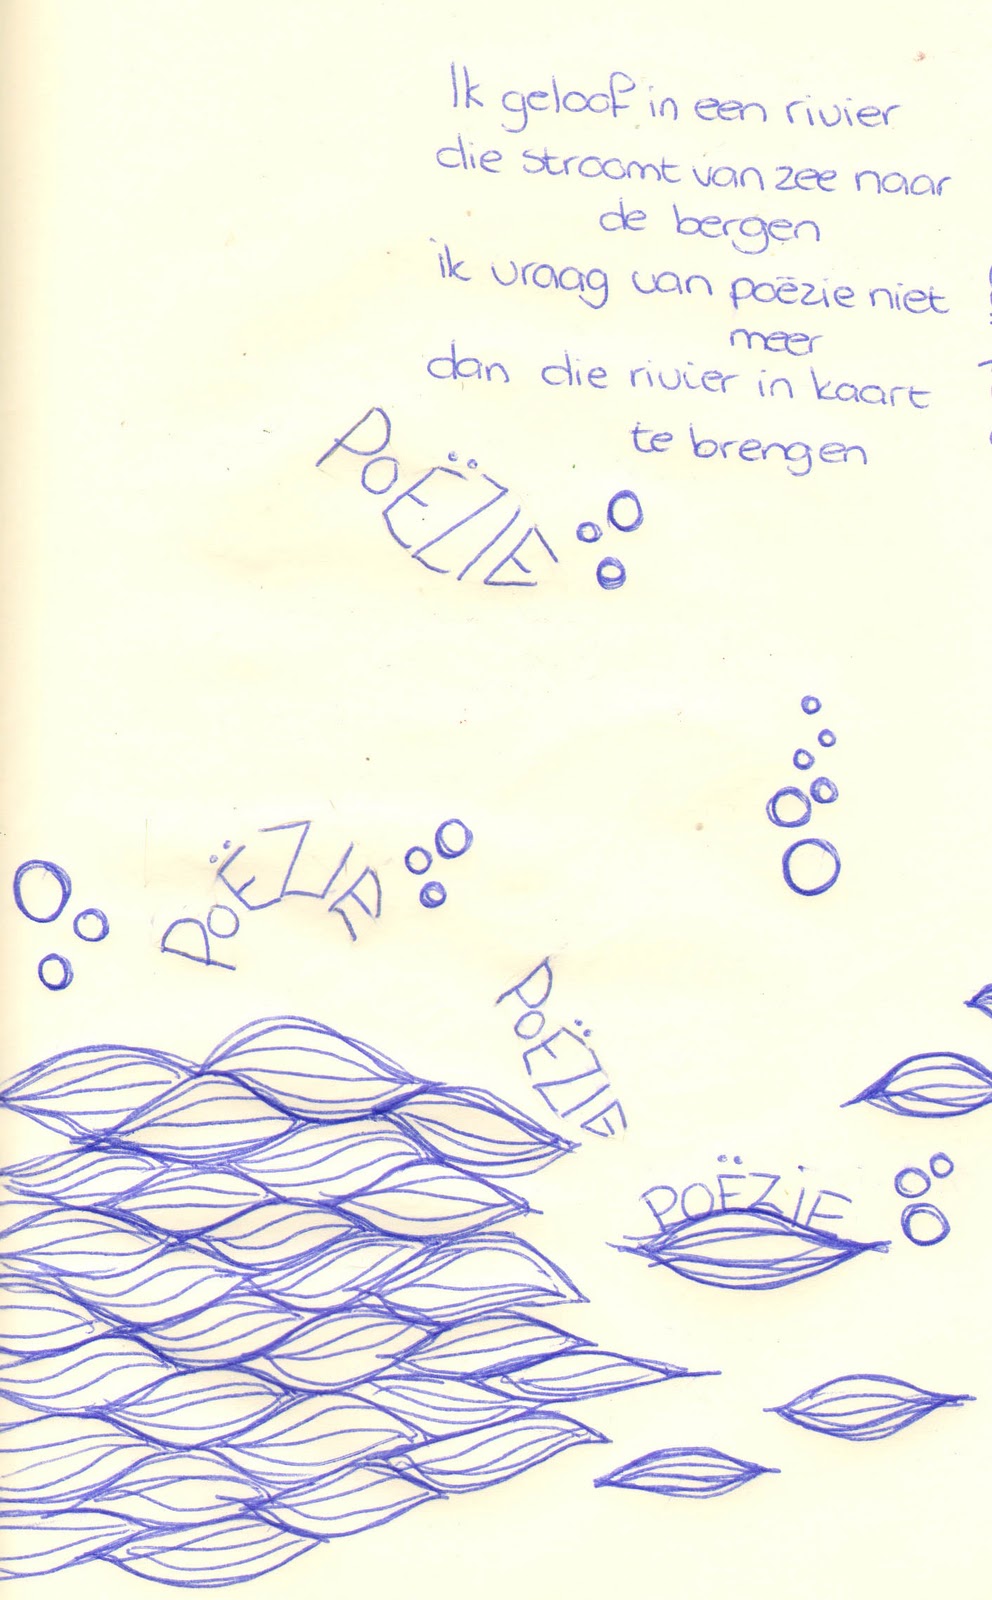 Ik geloof in een rivier
die stroomt van zee naar
de bergen
ik vraag van poëzie niet
meer
dan die rivier in kaart
te brengen
POËZIE
POËZIE
POËZIE
POËZIE